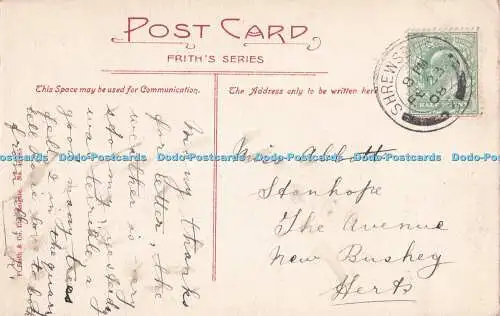 POST CARD
FRITH'S SERIES
This Space may be used for Communication.
The Address only to be written here
SHREWSB
Many thanks
for letter, the
weather is very
stormy, yesterday
was terrible, a
good many trees
fell in the
tell
from
Miss Abbott
Stanhope
The Avenue
New Bushey
Herts
Dodo-Postcards Dodo-Postcards Dodo-Postcards Dodo-Postcards Dodo-Postcards Dodo-Postcards